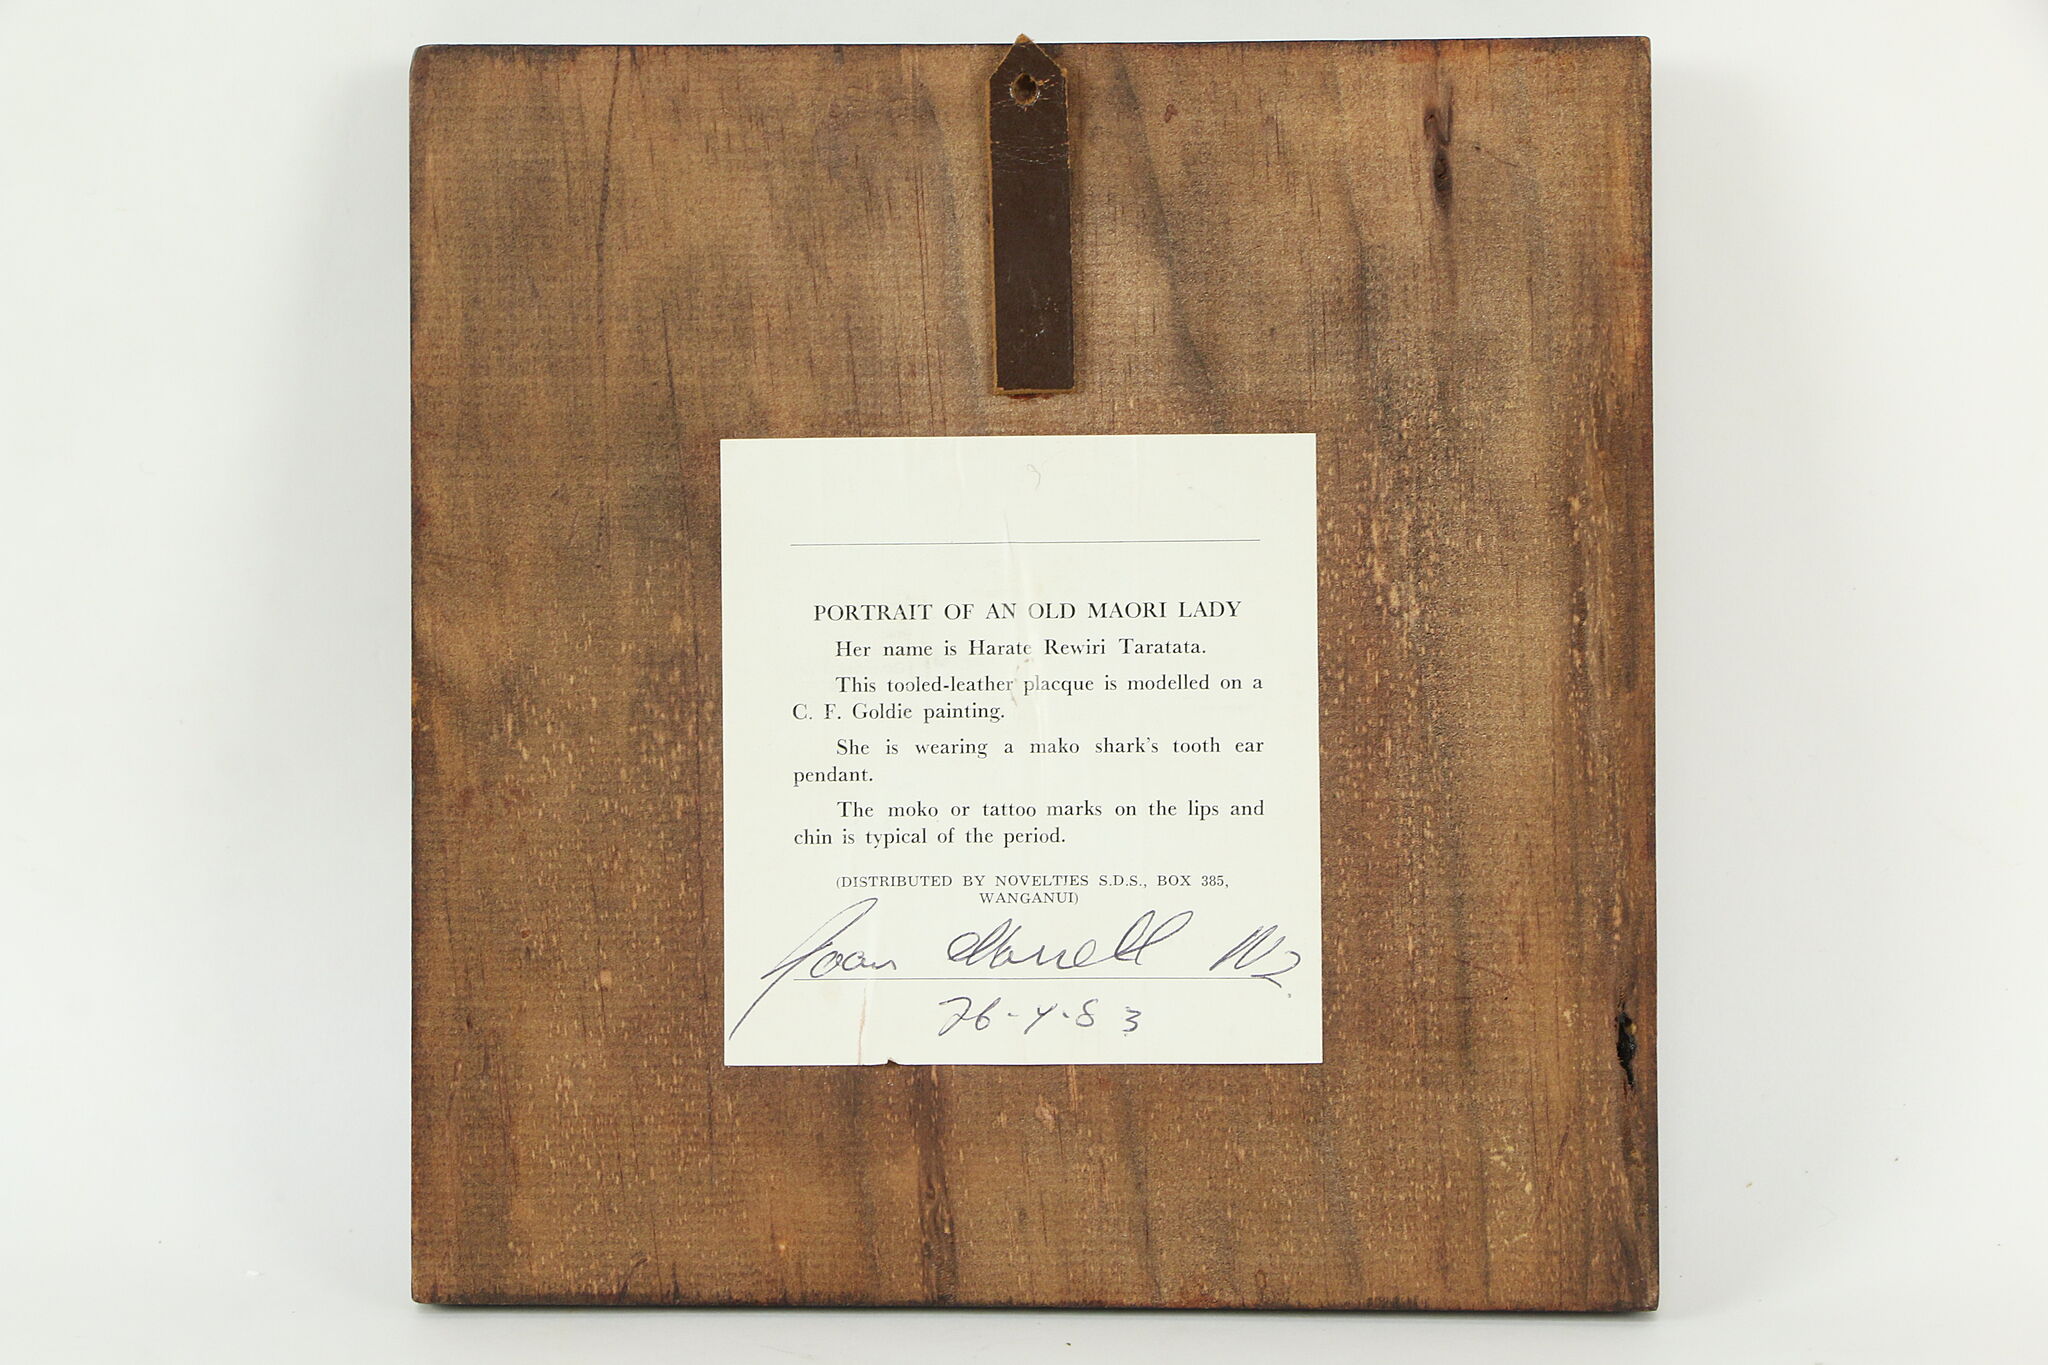 PORTRAIT OF AN OLD MAORI LADY
Her name is Harate Rewiri Taratata.
This tooled-leather placque is modelled on a
C. F. Goldie painting.
She is wearing a mako shark's tooth ear
pendant.
The moko or tattoo marks on the lips and
chin is typical of the period.
(DISTRIBUTED BY NOVELTIES S.D.S., BOX 385,
WANGANUI)
Joan NZ.
26-4-83